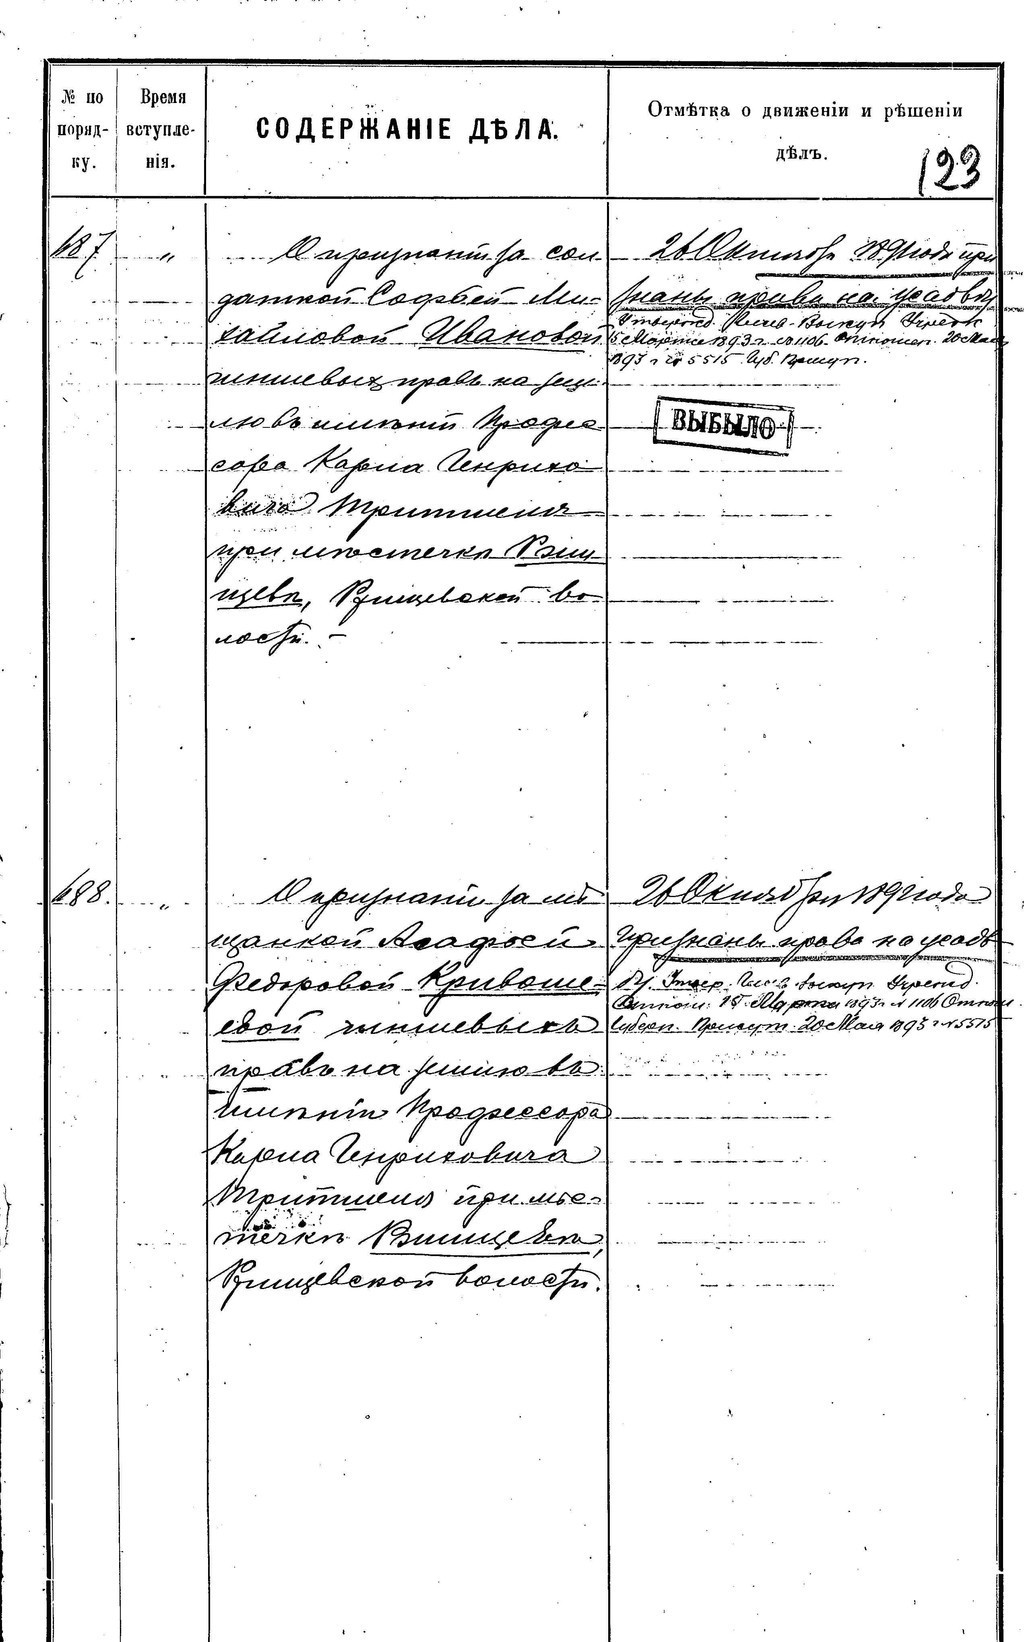 № по порядку.
Время вступленія.
СОДЕРЖАНІЕ ДѢЛА.
Отмѣтка о движеніи и рѣшеніи
дѣлъ.
123
687
"
О признаніи за сол
даткой Софьей Ми-
хайловой Ивановой
чиншевыхъ правъ на зем-
лю въ имѣніи Професс
сора Карла Генрихо
вича Тритшеля
при мѣстечкѣ Ржи
щевѣ, Ржищевской во-
лости. -
26 Октября 1892 года при
знаны права на усадьбу
Утвержд. Кіев. Выкуп. Учрежд.
5 Марта 1893 г. № 1106. Отношен. 20 Мая
1893 г. № 5515 Губ. Присут.
ВЫБЫЛО
688.
"
О признаніи за мѣ
щанкой Агафьей
Федоровой Кривоше-
евой чиншевыхъ
правъ на землю въ
имѣніи Профессора
Карла Генриховича
Тритшеля при мѣс-
течкѣ Ржищевѣ,
Ржищевской волости.
26 Октября 1892 года
Признаны права на усадь
бу. Утвер. Кіев. выкуп. Учрежд.
Отнош. 15 Марта 1893 г. № 1106 Отнош
Губерн. Присут. 20 Мая 1893 г. № 5515